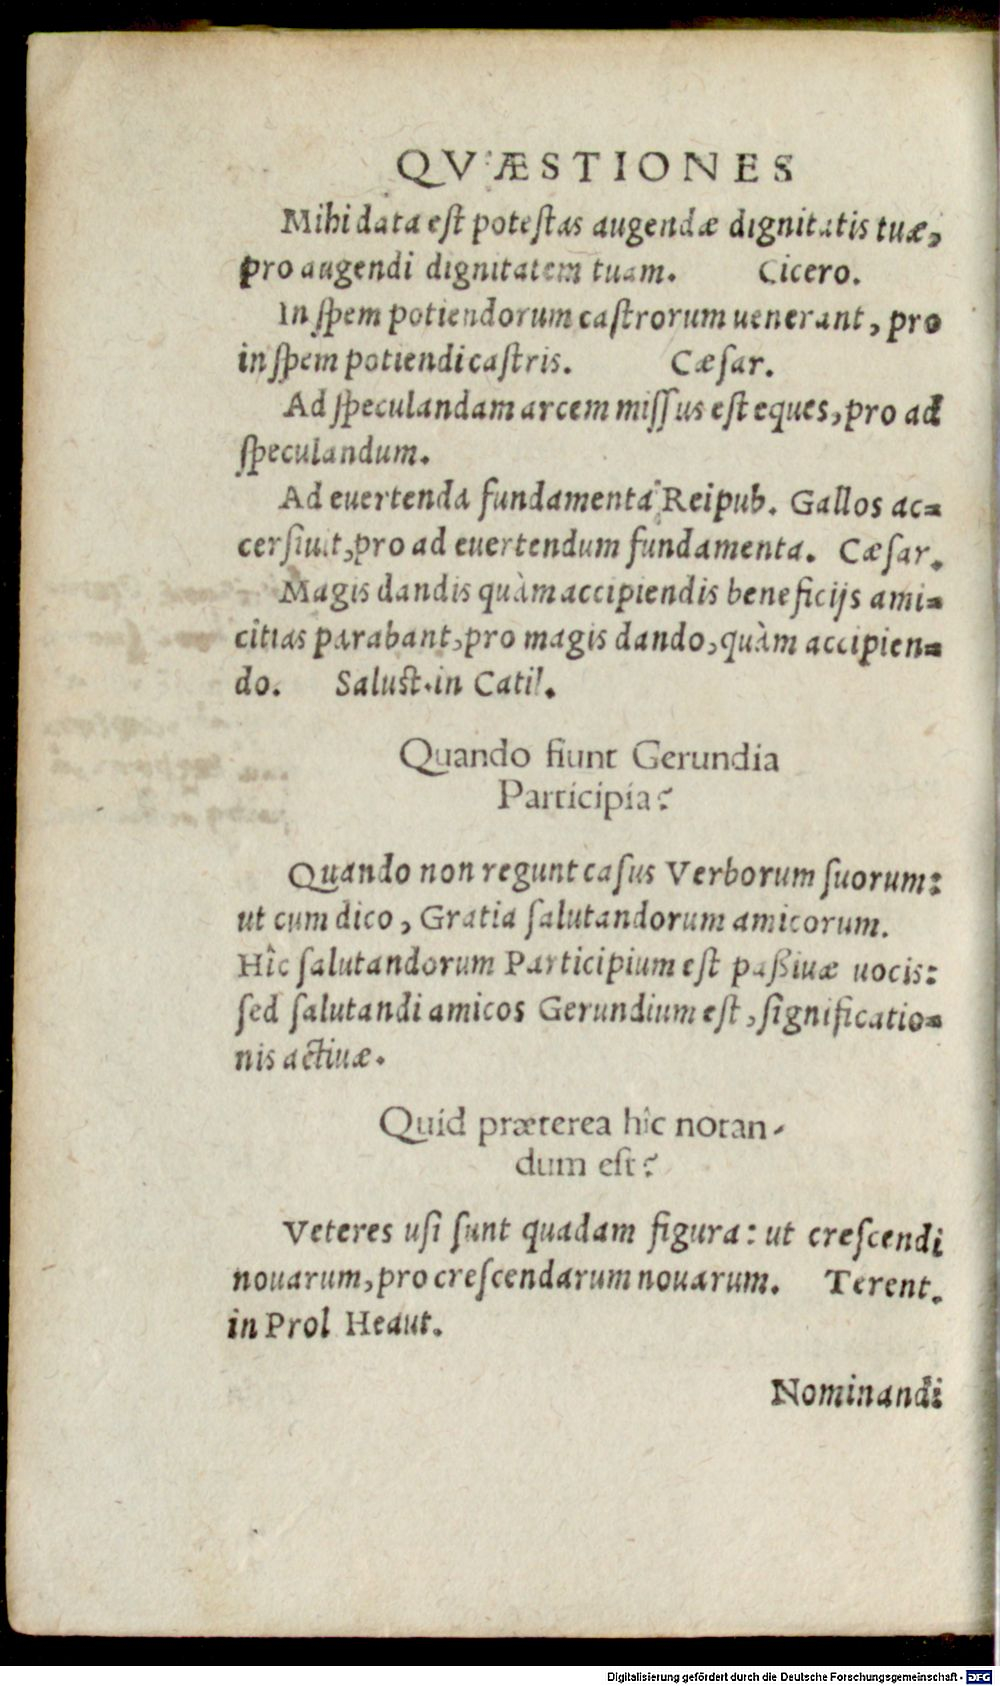 QVÆSTIONES
Mihi data est potestas augendæ dignitatis tuæ,
pro augendi dignitatem tuam. Cicero.
In spem potiendorum castrorum uenerant, pro
in spem potiendi castris. Cæsar.
Ad speculandam arcem missus est eques, pro ad
speculandum.
Ad euertenda fundamenta Reipub. Gallos ac=
cersiuit, pro ad euertendum fundamenta. Cæsar.
Magis dandis quàm accipiendis beneficijs ami=
citias parabant, pro magis dando, quàm accipien=
do. Salust. in Catil.
Quando fiunt Gerundia
Participia?
Quando non regunt casus Verborum suorum:
ut cum dico, Gratia salutandorum amicorum.
Hîc salutandorum Participium est paßiuæ uocis:
sed salutandi amicos Gerundium est, significatio=
nis actiuæ.
Quid præterea hîc notan-
dum est?
Veteres usi sunt quadam figura: ut crescendi
nouarum, pro crescendarum nouarum. Terent.
in Prol Heaut.
Nominandi
Digitalisierung gefördert durch die Deutsche Forschungsgemeinschaft - DFG